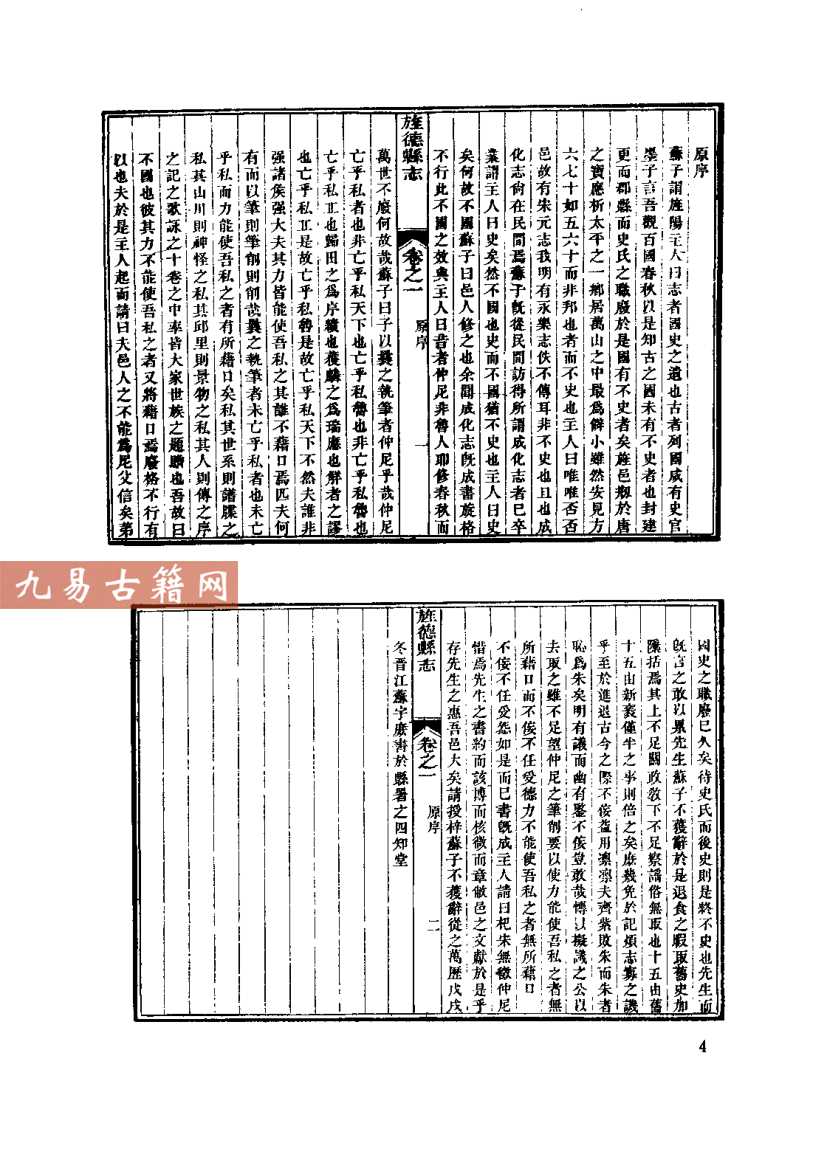 原序
蘇子謂旌陽主人曰志者國史之遺也古者列國咸有史官
墨子言吾觀百國春秋以是知古之國未有不史者也封建
更而郡縣而史氏之職廢於是國有不史者矣旌邑刱於唐
之寶應析太平之一鄉居萬山之中最爲僻小雖然安見方
六七十如五六十而非邦也者而不史也主人曰唯唯否否
邑故有朱元志我明有永樂志佚不傳耳非不史也且也成
化志尙在民間焉蘇子旣從民間訪得所謂成化志者已卒
業謂主人曰史矣然不國也史而不國猶不史也主人曰史
矣何故不國蘇子曰邑人修之也余聞成化志旣成書旋格
不行此不國之效與主人曰昔者仲尼非魯人耶修春秋而
旌德縣志
卷之一
原序
一
萬世不廢何故哉蘇子曰子以㬥之執筆者仲尼乎哉仲尼
亡乎私者也非亡乎私天下也亡乎私魯也非亡乎私魯也
亡乎私丘也歸田之爲序績也獲麟之爲瑞應也解者之謬
也亡乎私丘是故亡乎私魯是故亡乎私天下不然夫誰非
强諸侯强大夫其力皆能使吾私之其誰不藉口焉匹夫何
有而以筆則筆削則削哉㬥之執筆者未亡乎私者也未亡
乎私而力能使吾私之者有所藉口矣私其世系則譜牒之
私其山川則神怪之私其邱里則景物之私其人則傳之序
之記之歌詠之十卷之中率皆大家世族之題贈也吾故曰
不國也彼其力不能使吾私之者又將藉口焉廢格不行有
以也夫於是主人起而請曰夫邑人之不能爲尼父信矣弟
國史之職廢已久矣待史氏而後史則是終不史也先生而
旣言之敢以累先生蘇子不獲辭於是退食之暇取舊史加
檃括焉其上不足關政敎下不足察謠俗無取也十五由舊
十五由新袠僅半之事則倍之矣庶幾免於記煩志寡之譏
乎至於進退古今之際不佞蓋用凛凛夫齊紫敗朱而朱者
恥爲朱矣明有議而幽有鑒不佞豈敢哉愽以擬議之公以
去取之雖不足望仲尼之筆削要以使力能使吾私之者無
所藉口而不佞不任受德力不能使吾私之者無所藉口
不佞不任受怨如是而已書旣成主人請曰杞宋無徵仲尼
惜焉先生之書約而該博而核微而章敝邑之文獻於是乎
存先生之惠吾邑大矣請授梓蘇子不獲辭從之萬歷戊戌
旌德縣志
卷之一
原序
二
冬晋江蘇宇庶書於縣署之四知堂
九易古籍网
4